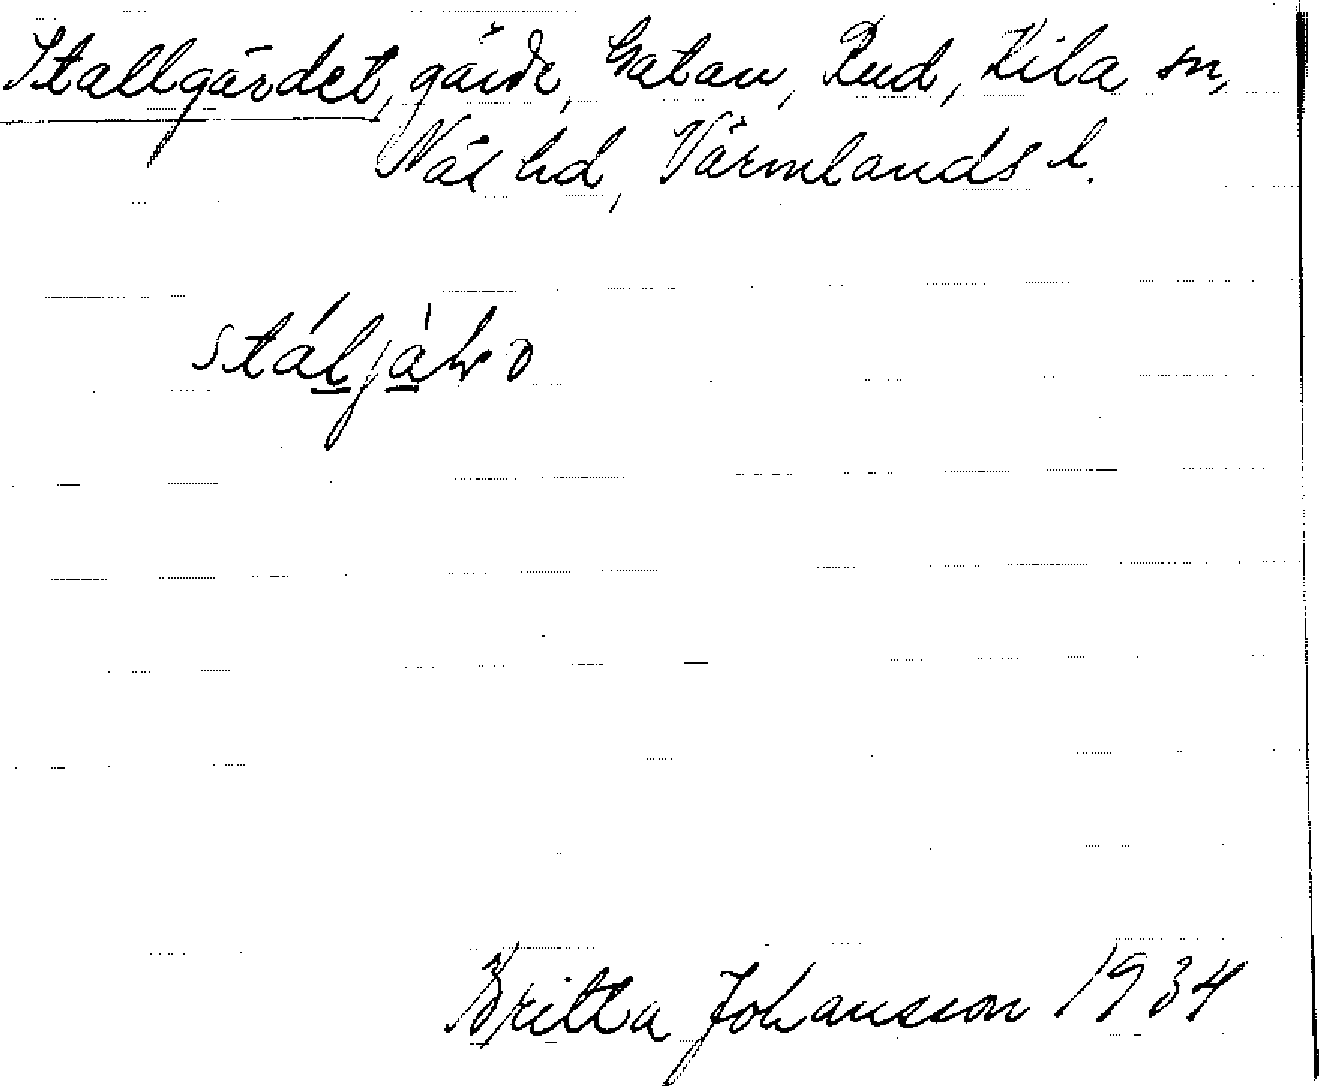 Stallgärdet, gärde, Gatan, Rud, Kila sn,
Näs hd, Värmlands l.
Britta Johansson 1934